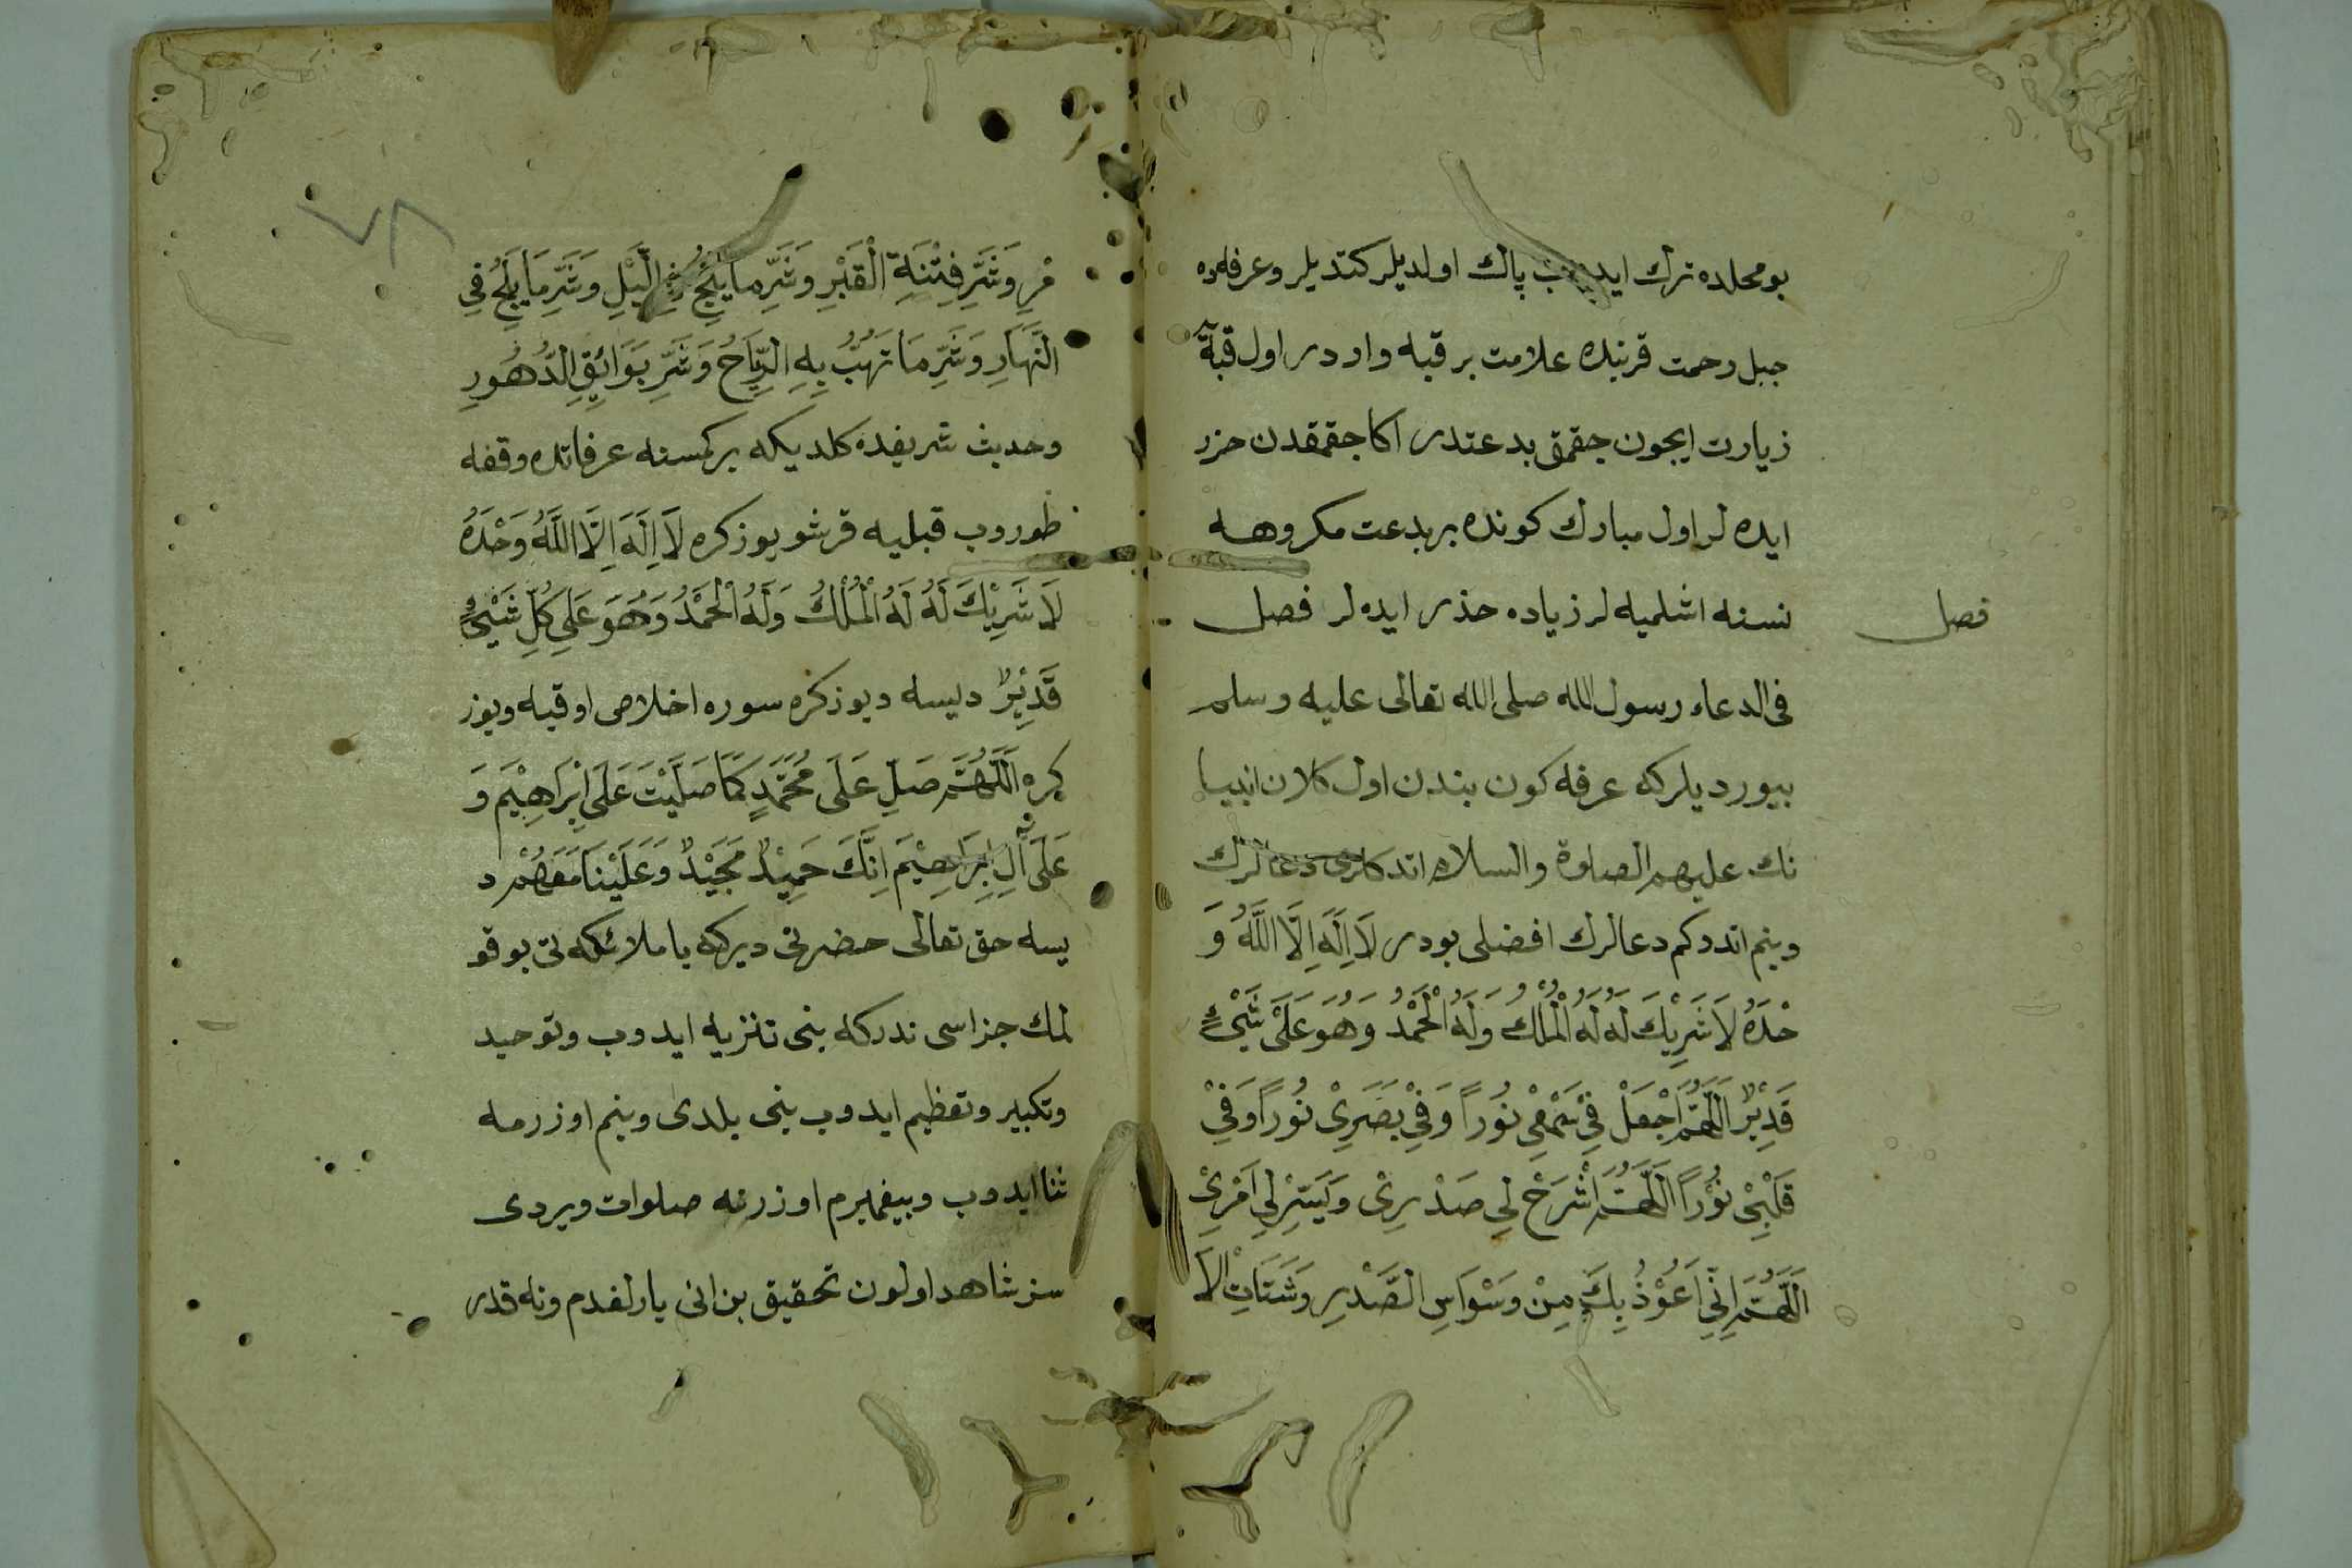 بو محلده ترك ايدوب پاك اولديلر كتديلر وعرفه ده
جبل رحمت قربنده علامت بر قبه واردر اول قبه
زيارت ايچون جقمق بدعتدر اكا جقمقدن حزر
ايده لر اول مبارك كونده بر بدعت مكروهه
نسنه اشلميه لر زياده حذر ايده لر فصل
فصل
فى الدعاء رسول الله صلى الله تعالى عليه وسلم
بيورديلر كه عرفه كون بندن اول كلان انبيا
نك عليهم الصلوة والسلام اتدكلرى دعالرك
وبنم اتدوكم دعالرك افضلى بودر لَا اِلَهَ اِلَّا اللَّهُ وَ
حْدَهُ لَا شَرِيْكَ لَهُ لَهُ الْمُلْكُ وَلَهُ الْحَمْدُ وَهُوَ عَلَى شَيْءٍ
قَدِيْرٌ اَللَّهُمَّ اجْعَلْ فِيْ سَمْعِيْ نُوراً وَفِيْ بَصَرِيْ نُوراً وَفِيْ
قَلْبِيْ نُوْراً اَللَّهُمَّ اشْرَحْ لِي صَدْرِيْ وَيَسِّرْ لِي اَمْرِيْ
اَللَّهُمَّ اِنِّي اَعُوْذُ بِكَ مِنْ وَسْوَاسِ الصَّدْرِ وَشَتَاتِ الْاَ
٧٨
مْرِ وَشَرِّ فِتْنَةِ الْقَبْرِ وَشَرِّ مَا يَلِجُ فِي اللَّيْلِ وَشَرِّ مَا يَلِجُ فِي
النَّهَارِ وَشَرِّ مَا تَهُبُّ بِهِ الرِّيَاحُ وَشَرِّ بَوَائِقِ الدُّهُورِ
وحديث شريفده كلديكه بر كمسنه عرفاتده وقفه
طوروب قبليه قرشو يوز كره لَا اِلَهَ اِلَّا اللَّهُ وَحْدَهُ
لَا شَرِيْكَ لَهُ لَهُ الْمُلْكُ وَلَهُ الْحَمْدُ وَهُوَ عَلَى كُلِّ شَيْءٍ
قَدِيْرٌ ديسه ويوز كره سوره اخلاص اوقيه ويوز
كره اَللَّهُمَّ صَلِّ عَلَى مُحَمَّدٍ كَمَا صَلَّيْتَ عَلَى اِبْرَاهِيْمَ وَ
عَلَى آلِ اِبْرَاهِيْمَ اِنَّكَ حَمِيْدٌ مَجَيْدٌ وَعَلَيْنَا مَعَهُمْ د
يسه حق تعالى حضرتى ديركه يا ملائكه تى بو قو
لمك جزاسى ندركه بنى تنزيه ايدوب وتوحيد
وتكبير وتعظيم ايدوب بنى بلدى وبنم اوزرمه
ثنا ايدوب وبيغمبرم اوزرنه صلوات ويردى
سز شاهد اولون تحقيق بن انى يارلغدم ونه قدر